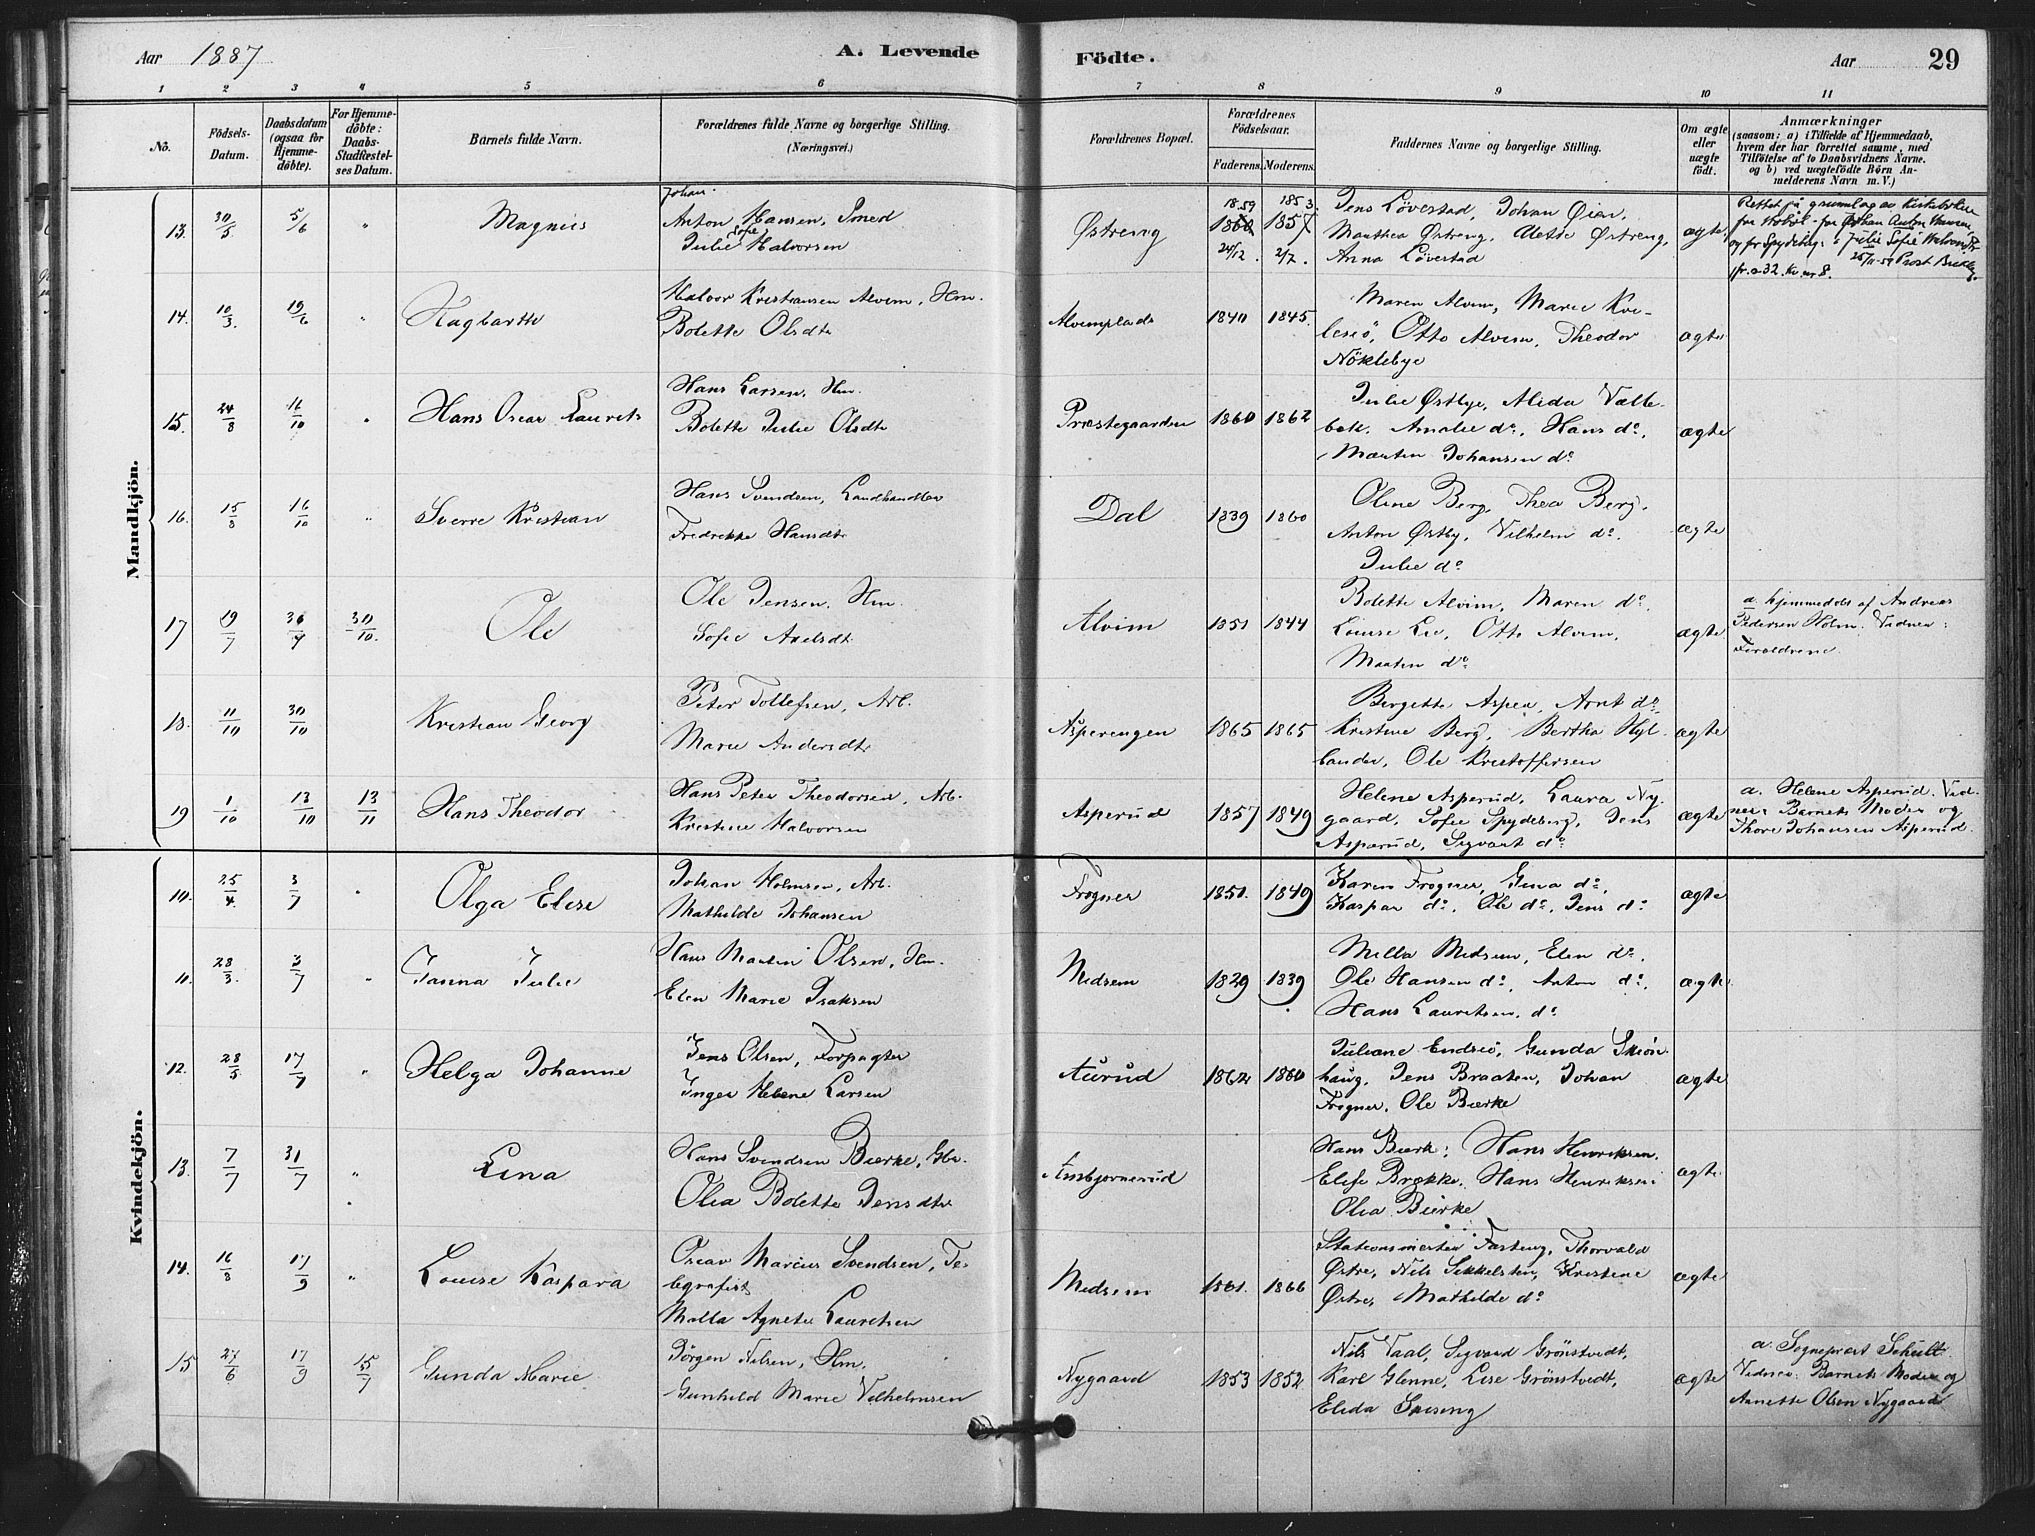 Aar 1887
A. Levende Födte.
Aar
29
1 2 3 4 5 6 7 8 9 10 11
No.
Födsels-Datum.
Daabsdatum (ogsaa för Hjemmedöbte).
For Hjemmedöbte: Daabs-Stadfæstelses Datum.
Barnets fulde Navn.
Forældrenes fulde Navne og borgerlige Stilling. (Næringsvei.)
Forældrenes Bopæl.
Forældrenes Födselsaar.
Faderens. Moderens.
Faddernes Navne og borgerlige Stilling.
Om ægte eller uægte födt.
Anmærkninger
(saasom: a) i Tilfælde af Hjemmedaab, hvem der har forrettet samme, med Tilföielse af to Daabsvidners Navne. og b) ved uægtefödte Börn Anmelderens Navn m. V.)
Mandkjön.
13. 30/5 5/6 " Magnus
Johan
Anton Hansen, Smed
Julie Sofie Halvorsen
Østreng
1859 1853
1860 1857
24/12. 2/7.
Jens Løvestad, Johan Øien,
Marthea Østreng, Alette Østreng,
Anna Løvestad
ægte
Rettet på grunnlag av Kirkeboken
for Hobøl - for Johan Anton Hansen
og for Spydeberg: Julie Sofie Halvorsdtr
14. 10/3 19/6 " Hagbarth
Halvor Kristiansen Alvim, Hm.
Bolette Olsdtr
Alvimplads 1840 1845.
Maren Alvim, Marie Kve-
lesiö, Otto Alvim, Theodor
Nöklebye
ægte
15. 24/8 16/10 " Hans Oscar Laurits
Hans Larsen, Hm.
Bolette Julie Olsdtr
Præstegaarden 1860 1862
Julie Østbye, Alida Vætte-
bæk. Amalie do, Hans do,
Martin Johansen do
ægte
16. 15/8 16/10 " Sverre Kristian
Hans Svendsen, Landhandler
Fredrikke Hansdtr
Dal 1839 1860
Oline Berg, Thea Berg,
Anton Østby, Vilhelm do.
Julie do
ægte
17 19/7 30/10.
Ole
Ole Jensen, Hm.
Sofie Axelsdtr
Alvim 1851 1844
Bolette Alvim, Maren do.
Louise Lie, Otto Alvim,
Martin do
ægte
a. hjemmedøbt af Andreas
Pedersen Holm. Vidner:
Forældrene
18. 11/10 30/10 Kristian Georg
Peter Tollefsen, Arb.
Marie Andersdtr
Asperengen 1865 1865
Bergitte Aspen, Arnt do.
Kristine Berg, Bertha Hyl-
lander, Ole Kristoffersen
ægte
19 1/10 13/10 13/11 Hans Theodor
Hans Peter Theodorsen, Arb.
Kristine Halvorsen
Asperud 1857 1849
Helene Asperud, Laura Ny-
gaard, Sofie Spydeberg, Jens
Asperud, Sigvart do
ægte
a. Helene Asperud. Vid-
ner: Barnets Moder og
Thore Johansen Asperud.
Kvindekjön.
10. 25/4 3/7 " Olga Elise
Johan Holmsen, Arb.
Mathilde Johansen
Frogner 1851. 1849
Karen Frogner, Gina do.
Kaspar do. Ole do. Jens do
ægte
11. 28/3 3/7 " Janna Julie
Hans Martin Olsen, Hm.
Elen Marie Isaksen
Medsem 1829 1839
Milla Medsem, Elen do.
Ole Hansen do, Anton do,
Hans Lauritsen, do
ægte
12. 28/5 17/7 " Helga Johanne
Jens Olsen, Forpagter
Inger Helene Larsen
Aurud 1862 1860
Juliane Endsiö, Gunda Skiön-
haug, Jens Braaten, Johan
Frogner, Ole Bierke
ægte
13. 7/7 31/7 " Lina
Hans Svendsen Bierke, Gbr.
Olia Bolette Jensdtr
Ambjørnerud
Hans Bierk, Hans Henriksen,
Elise Brække, Hans Henriksen
Olia Bierke
ægte
14. 16/8 17/9 " Louise Kaspara
Oscar Marius Svendsen, Te-
legrafist
Malla Agnete Lauritsen
Medsem 1861. 1866
Stationsmester Fasting, Thorvald
Østre, Nils Sikkelsten, Kristine
Østre, Mathilde do
ægte
15 27/6 17/9 15/7 Gunda Marie
Jörgen Nilsen, Hm.
Gunhild Marie Vilhelmsen
Nygaard 1853 1852
Nils Vaal, Sigvard Grönstvedt,
Karl Glenne, Lise Grönstvedt,
Elida
ægte
a. Sogneprest Schult.
Vidner: Barnets Moder og
Annette Olsen Nygaard